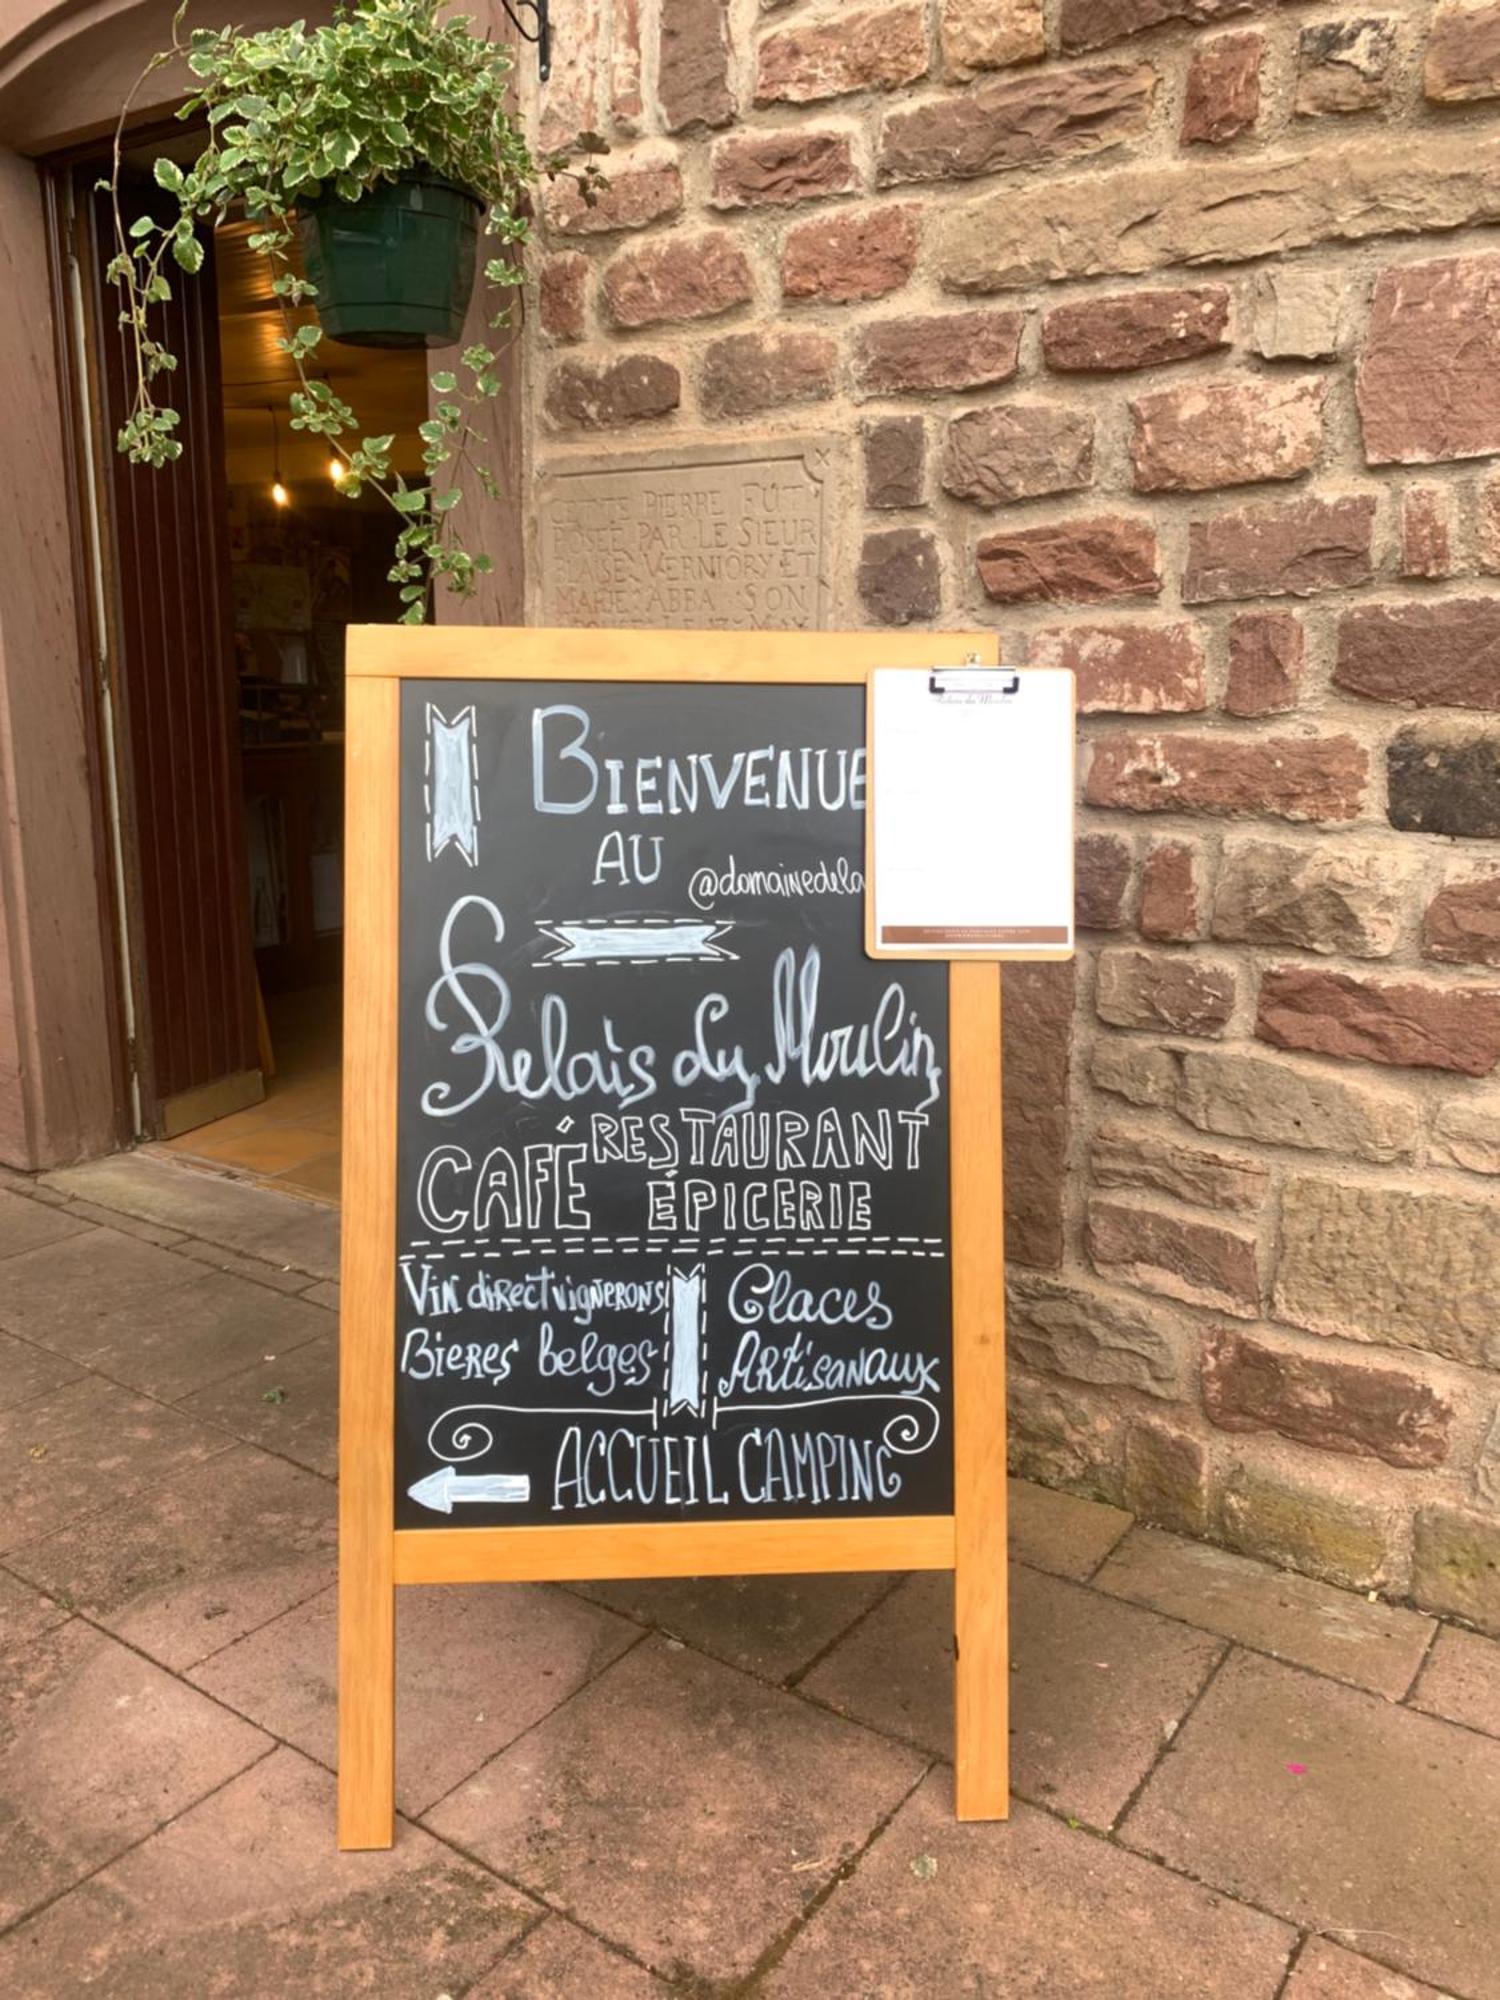 CETTE PIERRE FUT
POSEE PAR LE SIEUR
BLAISE VERNIORY ET
MARIE ABBA SON
Relais du Moulin
BIENVENUE
AU
@domainedela
Relais du Moulin
CAFÉ RESTAURANT
ÉPICERIE
Vin direct vignerons
Bieres belges
Glaces
Artisanaux
ACCUEIL CAMPING